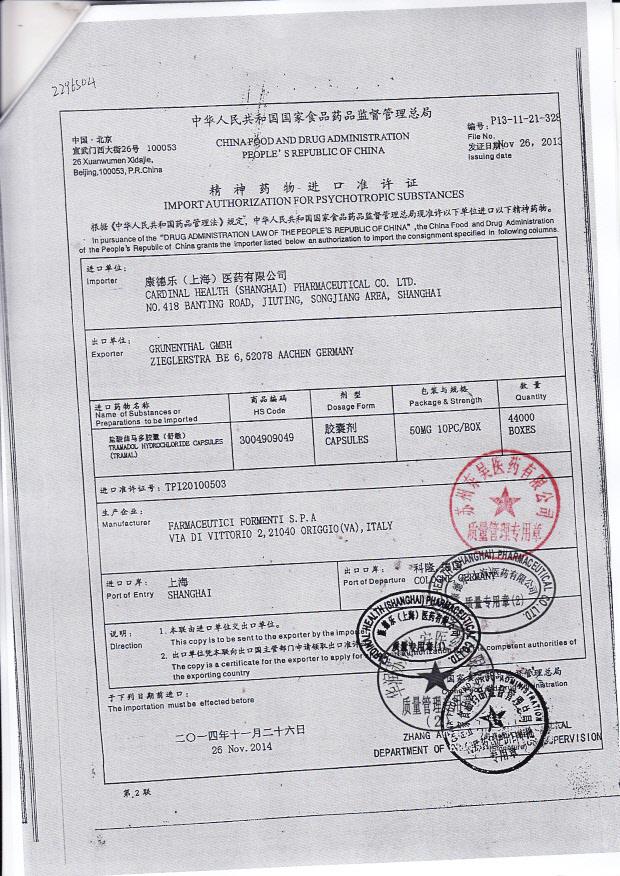 2296504
中华人民共和国国家食品药品监督管理总局
CHINA FOOD AND DRUG ADMINISTRATION
PEOPLE'S REPUBLIC OF CHINA
中国·北京
宣武门西大街26号 100053
26 Xuanwumen Xidajie,
Beijing,100053, P.R.China
编号: P13-11-21-328
File No.
发证日期 Nov 26, 2013
Issuing date
精神药物·进口准许证
IMPORT AUTHORIZATION FOR PSYCHOTROPIC SUBSTANCES
根据《中华人民共和国药品管理法》规定,中华人民共和国国家食品药品监督管理总局现准许以下单位进口以下精神药物。
In pursuance of the "DRUG ADMINISTRATION LAW OF THE PEOPLE'S REPUBLIC OF CHINA",the China Food and Drug Administration
of the People's Republic of China grants the importer listed below an authorization to import the consignment specified in following columns.
进口单位:
Importer
康德乐(上海)医药有限公司
CARDINAL HEALTH (SHANGHAI) PHARMACEUTICAL CO. LTD.
NO.418 BANTING ROAD, JIUTING, SONGJIANG AREA, SHANGHAI
出口单位:
Exporter
GRUNENTHAL GMBH
ZIEGLERSTRA BE 6,52078 AACHEN GERMANY
进口药物名称
Name of Substances or
Preparations to be Imported
商品编码
HS Code
剂型
Dosage Form
包装与规格
Package & Strength
数量
Quantity
盐酸曲马多胶囊(舒敏)
TRAMADOL HYDROCHLORIDE CAPSULES
(TRAMAL)
3004909049
胶囊剂
CAPSULES
50MG 10PC/BOX
44000
BOXES
进口准许证号: TPI20100503
生产企业:
Manufacturer
FARMACEUTICI FORMENTI S.P.A
VIA DI VITTORIO 2,21040 ORIGGIO(VA),ITALY
苏州东吴医药有限公司
质量管理专用章
进口口岸:
Port of Entry
上海
SHANGHAI
出口口岸:
Port of Departure
科隆
GERMANY
(SHANGHAI) PHARMACEUTICAL CO.,LTD.
质量专用章(2)
CARDINAL HEALTH (SHANGHAI) PHARMACEUTICAL CO.,LTD.
康德乐(上海)医药有限公司
质量专用章(1)
说明:
Direction
1. 本联由进口单位交出口单位。
This copy is to be sent to the exporter by the importer
2. 出口单位凭本联向出口国主管部门申请领取出口准许
The copy is a certificate for the exporter to apply for
competent authorities of
the exporting country
于下列日期前进口:
The importation must be effected before
二〇一四年十一月二十六日
26 Nov.2014
质量管理
(2)
专用章
ZHANG
DEPARTMENT OF
SUPERVISION
第2联